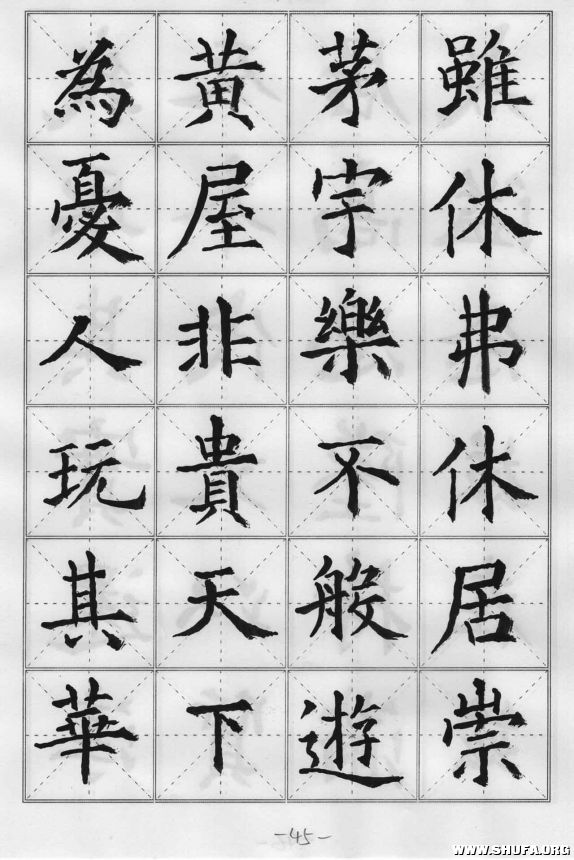 雖休弗休居崇
茅宇樂不般遊
黃屋非貴天下
為憂人玩其華
-45-
WWW.SHUFA.ORG